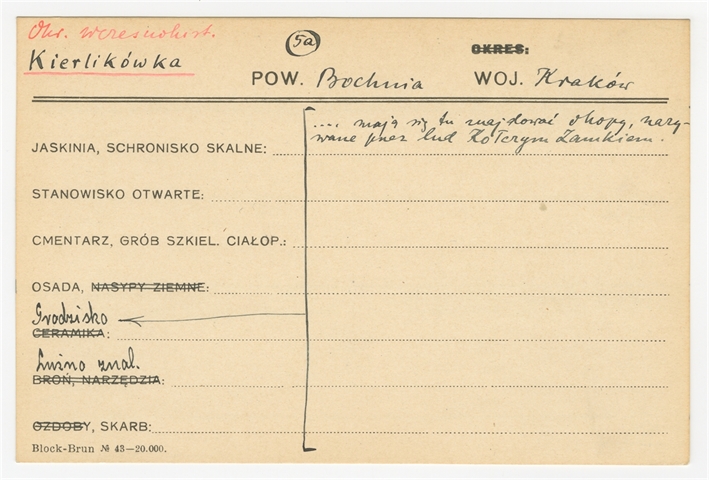 Okr. wczesnohist.
5a
Kierlikówka
OKRES:
POW. Bochnia
WOJ. Kraków
.... mają się tu znajdować okopy, nazy-
wane przez lud Kołczym Zamkiem.
JASKINIA, SCHRONISKO SKALNE:
STANOWISKO OTWARTE:
CMENTARZ, GRÓB SZKIEL. CIAŁOP.:
OSADA, NASYPY ZIEMNE:
Grodzisko
CERAMIKA:
Luźno znal.
BROŃ, NARZĘDZIA:
OZDOBY, SKARB:
Block-Brun № 43—20.000.